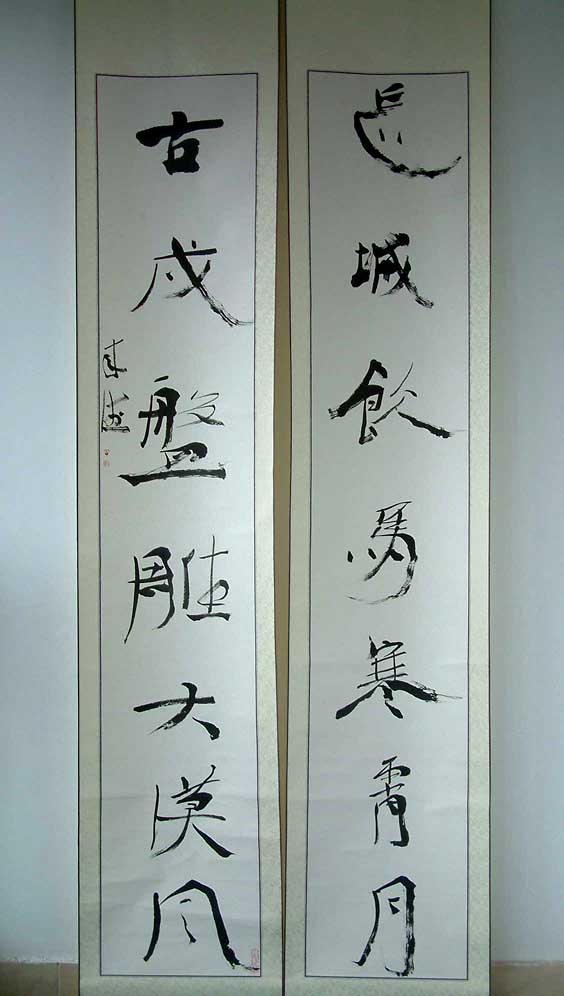 長城飲馬寒霄月
古戍盤雕大漠风